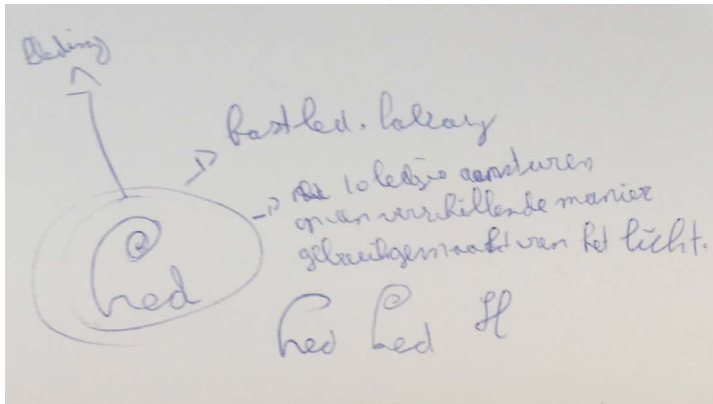 Bleding
fastled. library
10 ledjse aansturen
op een verschillende manier
gebruikgemaakt van het licht.
Led
Led Led H